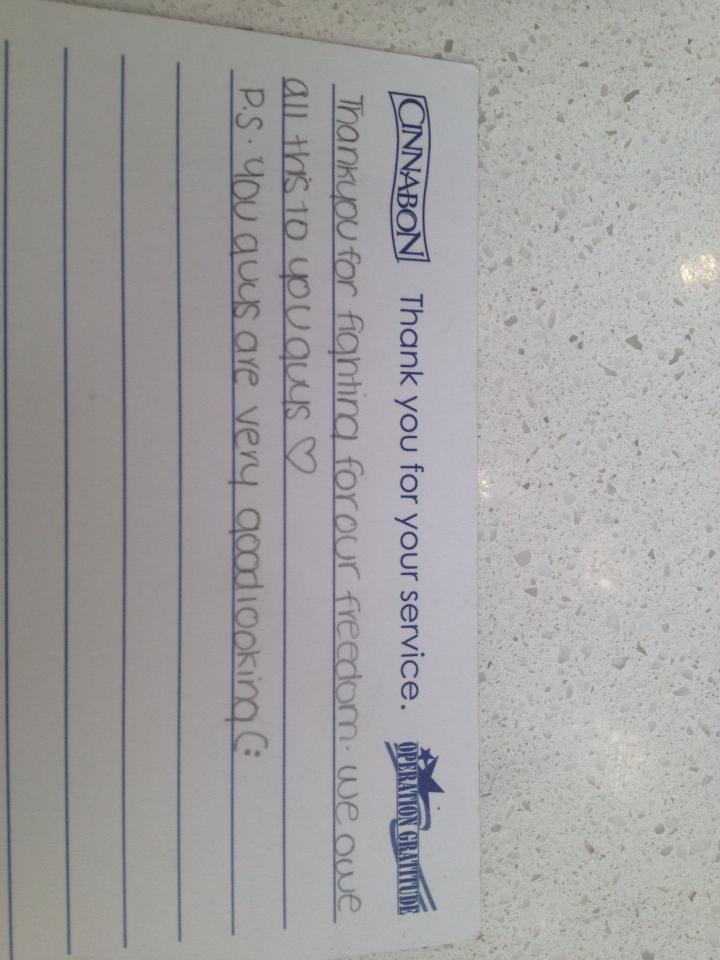 CINNABON Thank you for your service. OPERATION GRATITUDE
Thankyou for fighting for our freedom. we owe
all this to you guys ♡
P.S. you guys are very goodlooking (: